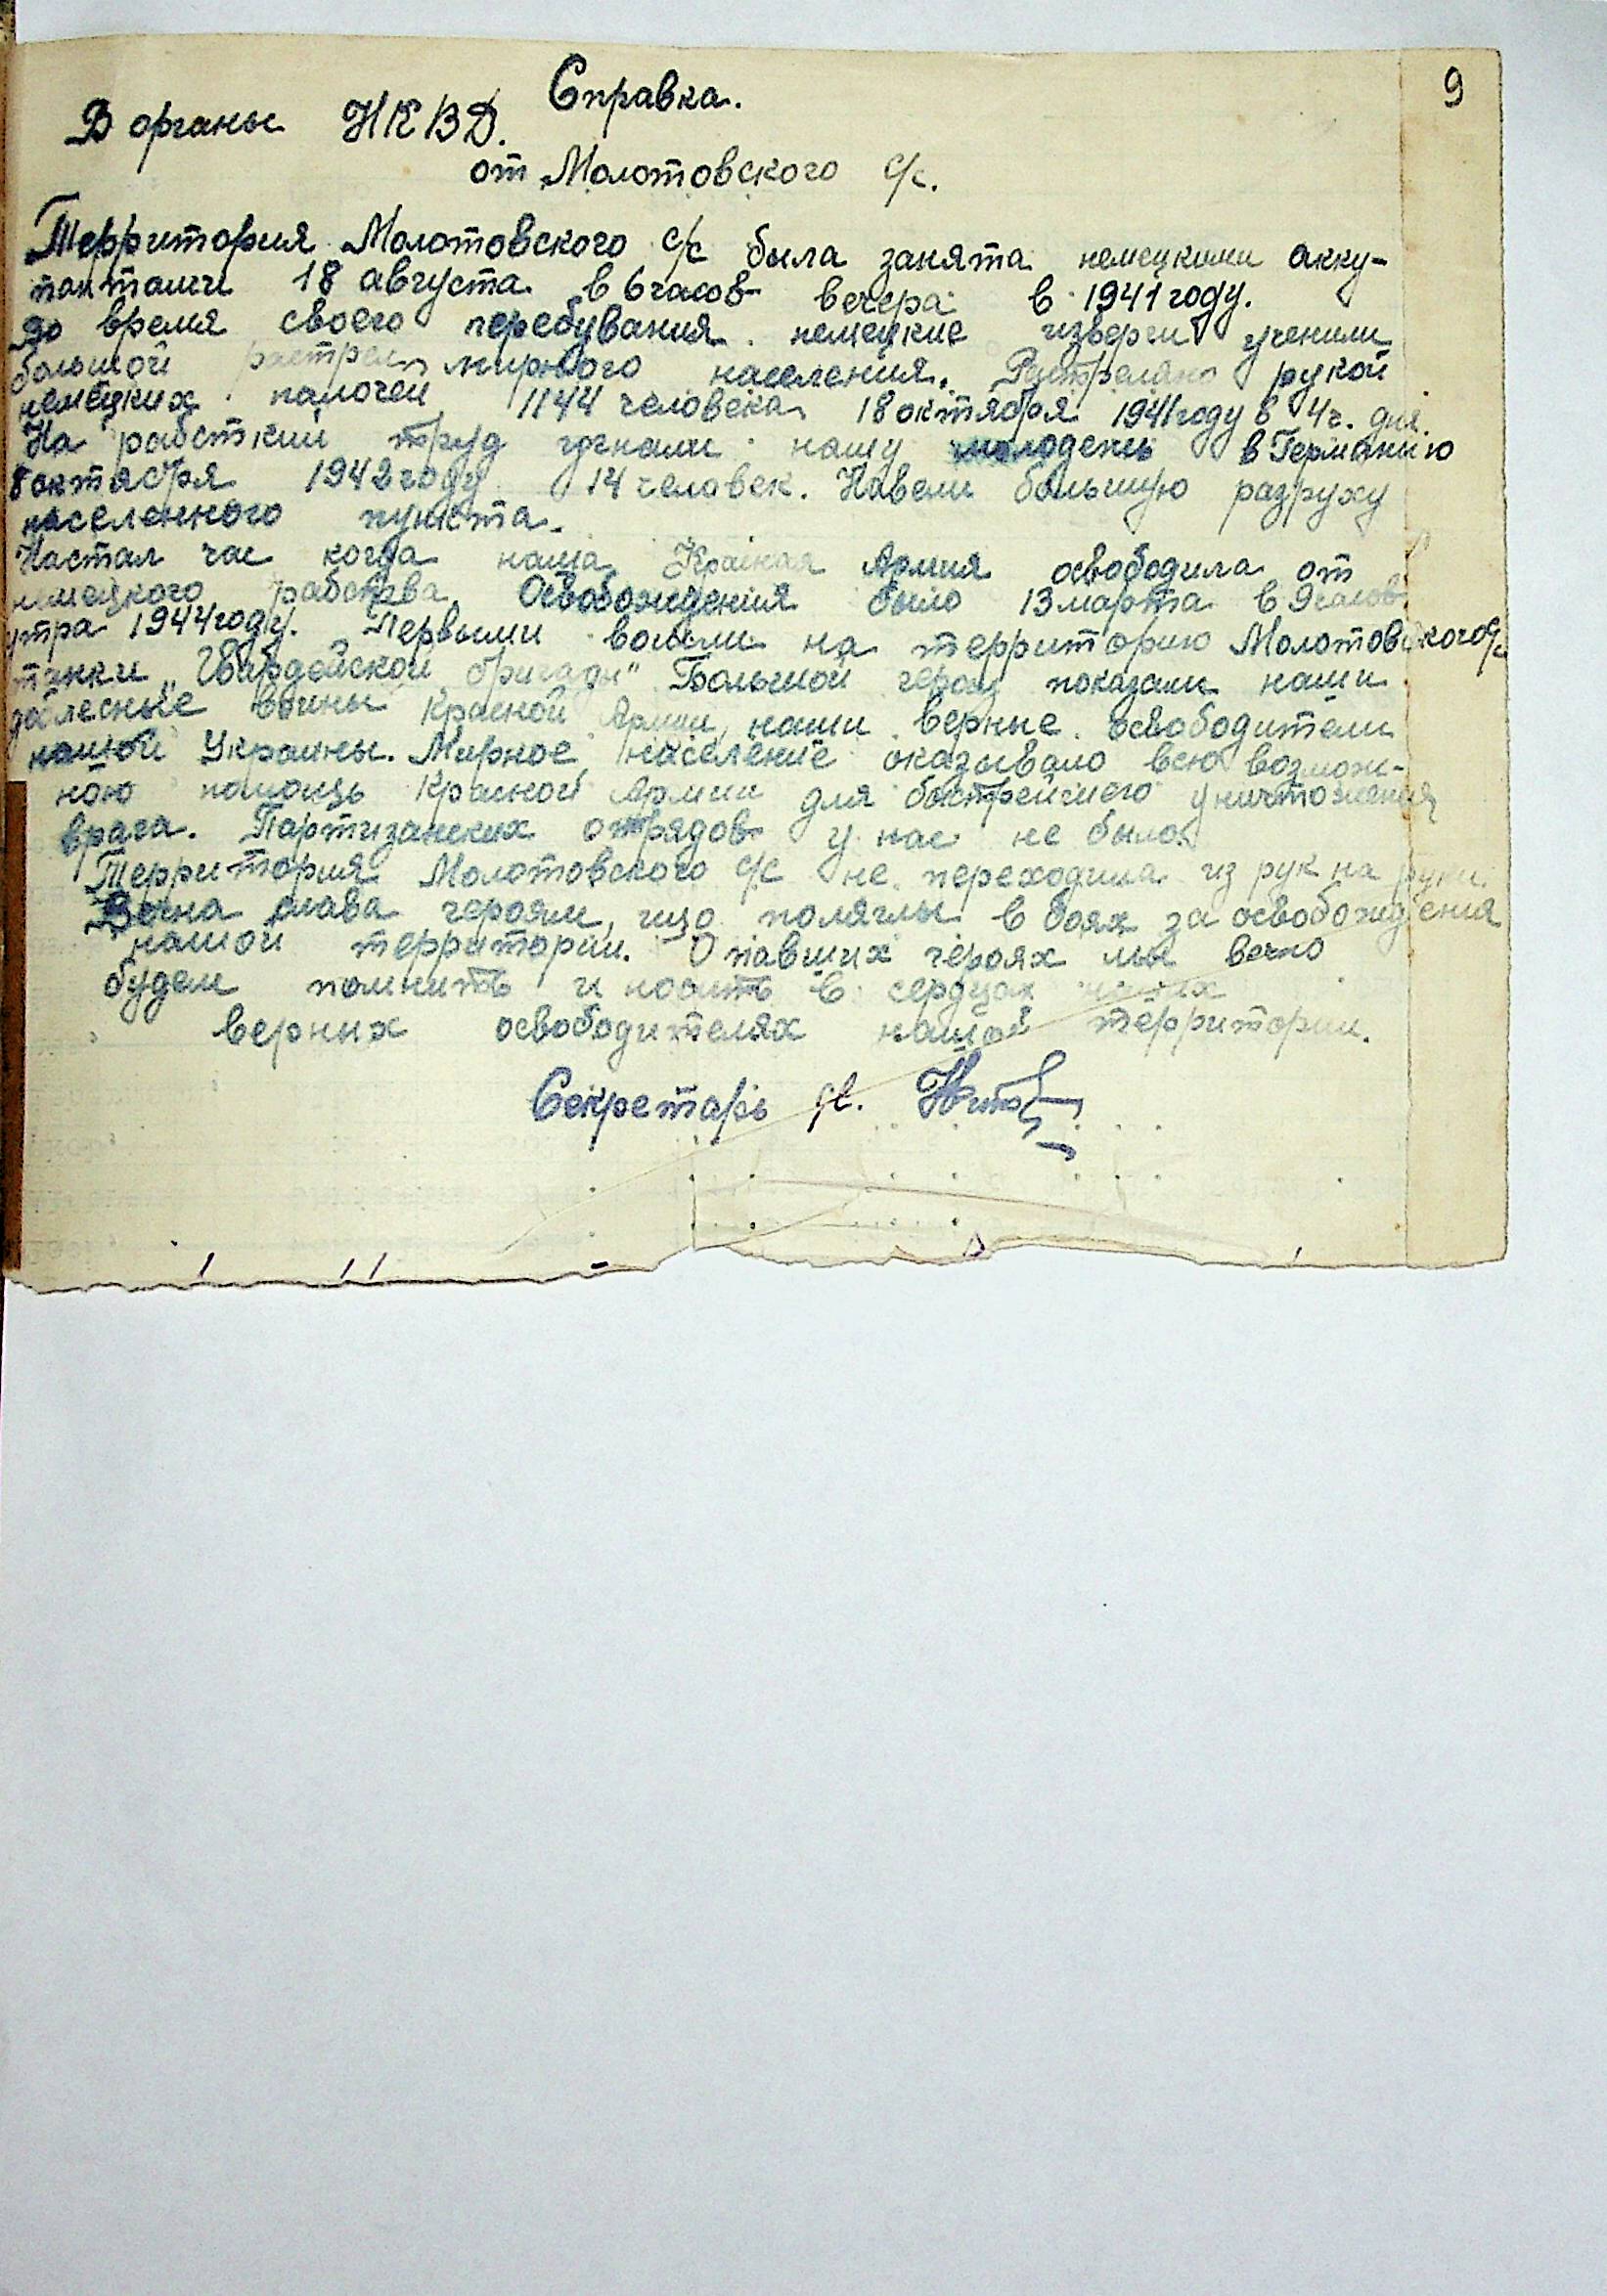 9
Справка.
В органы НКВД.
от Молотовского с/с.
Территория Молотовского с/с была занята немецкими акку-
пантами 18 августа в 6 часов вечера в 1941 году.
Во время своего перебувания немецкие изверги учинили
большой растрел мирного населения. Растреляно рукой
немецких палочей 1144 человека 18 октября 1941 году в 4 ч. дня.
На рабсткий труд угнали нашу молодежь в Германию
8 октября 1942 году 14 человек. Навели большую разруху
населенного пункта.
Настал час когда наша Красная Армия освободила от
немецкого рабства. Освобождения было 13 марта в 9 часов
утра 1944 году. Первыми вошли на территорию Молотовского с/с
танки „Гвардейской бригады" Большой героизм показали наши
доблесные воины Красной Армии, наши верные освободители
нашой Украины. Мирное население оказывало всю возмож-
ною помощь Красной Армии для бистрейшего уничтожения
врага. Партизанских отрядов у нас не было.
Территория Молотовского с/с не переходила из рук на руки.
Вечна слава героям, що полягли в боях за освобождения
нашой территории. О павших героях мы вечно
будем помнить и носить в сердцах наших
верних освободителях нашой территории.
Секретарь с/с.